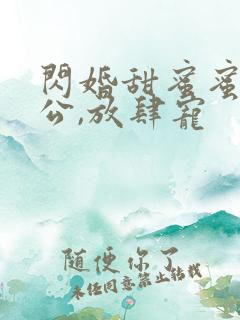 閃婚甜蜜蜜
公,放肆寵
隨便你了
未經同意禁止轉載